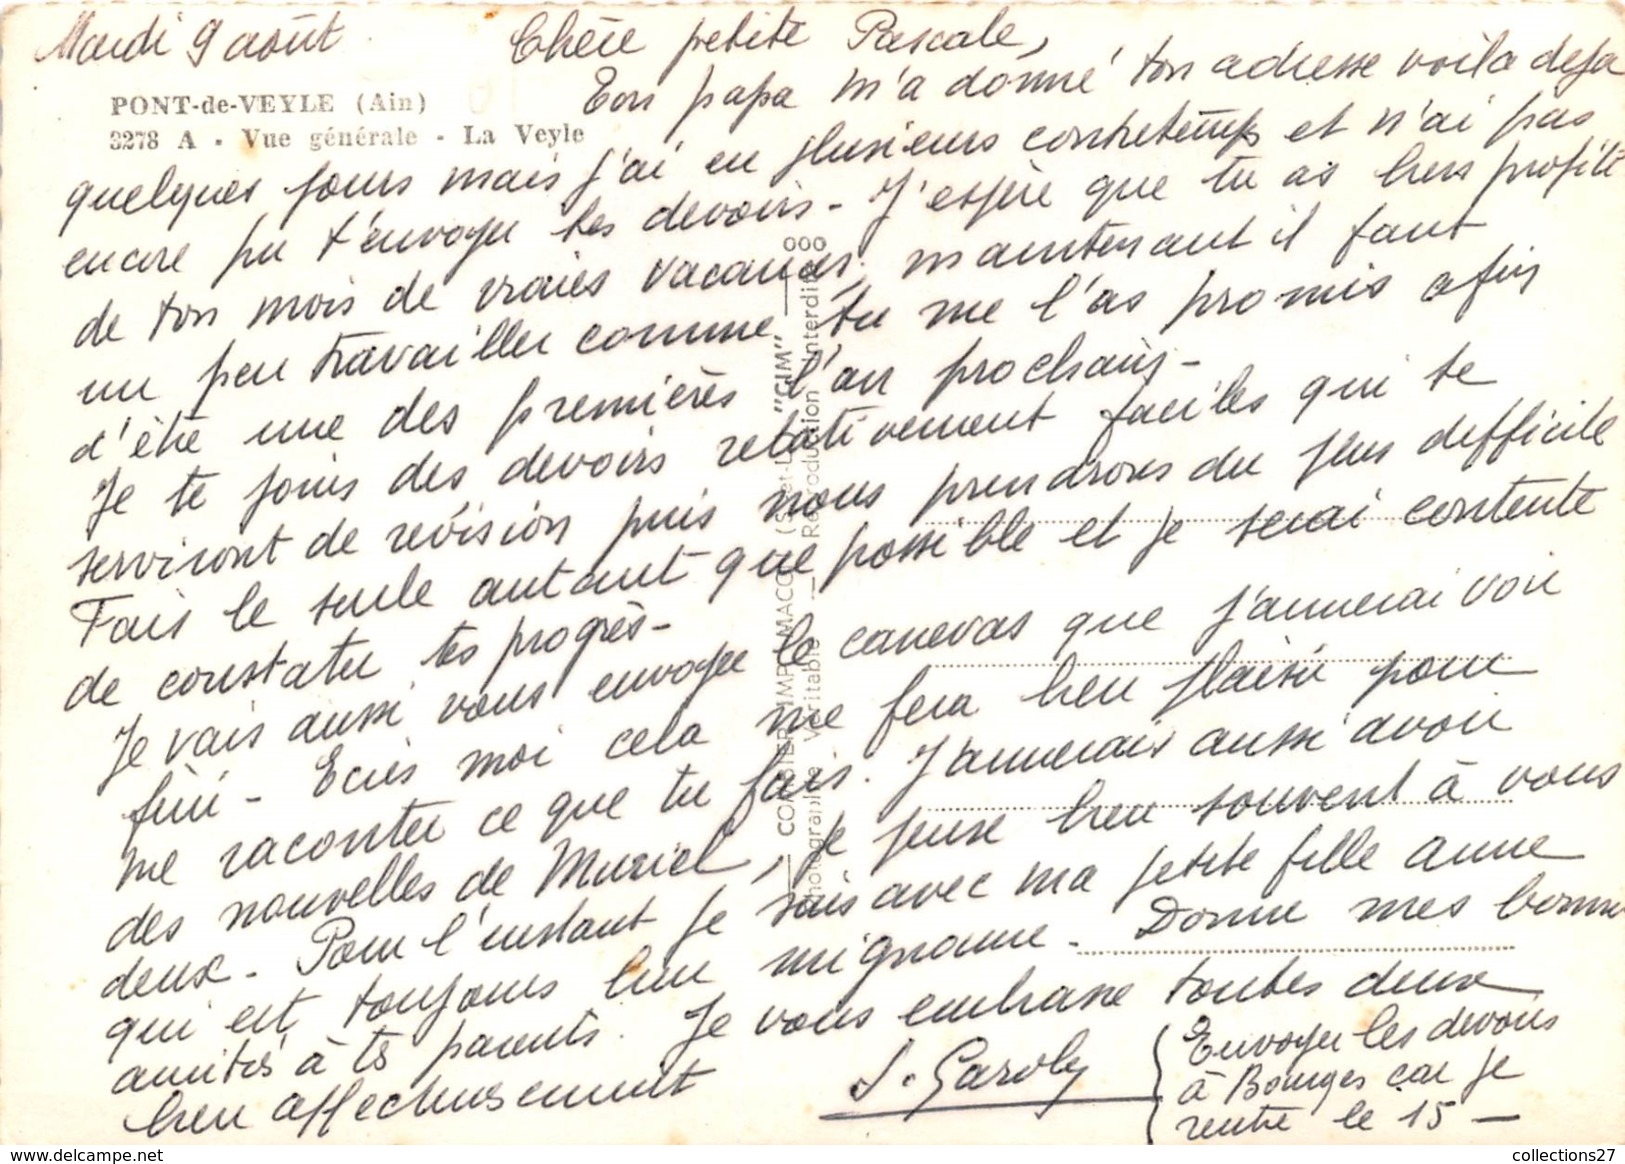 Mardi 9 août
Chère petite Pascale,
PONT-de-VEYLE (Ain)
3278 A - Vue générale - La Veyle
Ton papa m'a donné ton adresse voila deja
quelques jours mais j'ai eu plusieurs contretemps et n'ai pas
encore pu t'envoyer tes devoirs - J'espère que tu as bien profité
de ton mois de vraies vacances, maintenant il faut
un peu travailler comme tu me l'as promis afin
d'être une des premières l'an prochain -
Je te joins des devoirs relativement faciles qui te
serviront de révision puis nous prendrons du plus difficile
Fais le seule autant que possible et je serai contente
de constater tes progrès -
Je vais aussi vous envoyer le canevas que j'aimerai voir
fini - Ecris moi cela me fera bien plaisir pour
me raconter ce que tu fais. J'aimerais aussi avoir
des nouvelles de Muriel, je pense bien souvent à vous
deux - Pour l'instant je suis avec ma petite fille Anne
qui est toujours bien mignonne - Donne mes bonnes
amitiés à tes parents. Je vous embrasse toutes deux
bien affectueusement
Envoyer les devoirs
à Bourges car je
rentre le 15 -
COMBIER IMP. MACON (S.-et-L.) "CIM"
Photographie Véritable - Reproduction Interdite
collections27